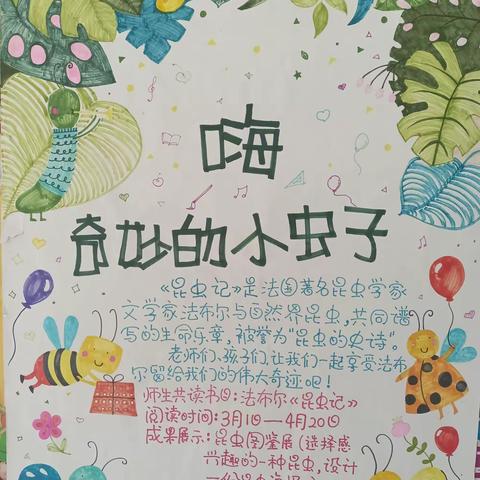 嗨
奇妙的小虫子
《昆虫记》是法国著名昆虫学家
文学家法布尔与自然界昆虫,共同谱
写的生命乐章,被誉为"昆虫的史诗"。
老师们、孩子们,让我们一起享受法布
尔留给我们的伟大奇迹吧!
师生共读书目:法布尔《昆虫记》
阅读时间:3月1日—4月20日
成果展示:昆虫图鉴展(选择感
兴趣的一种昆虫,设计